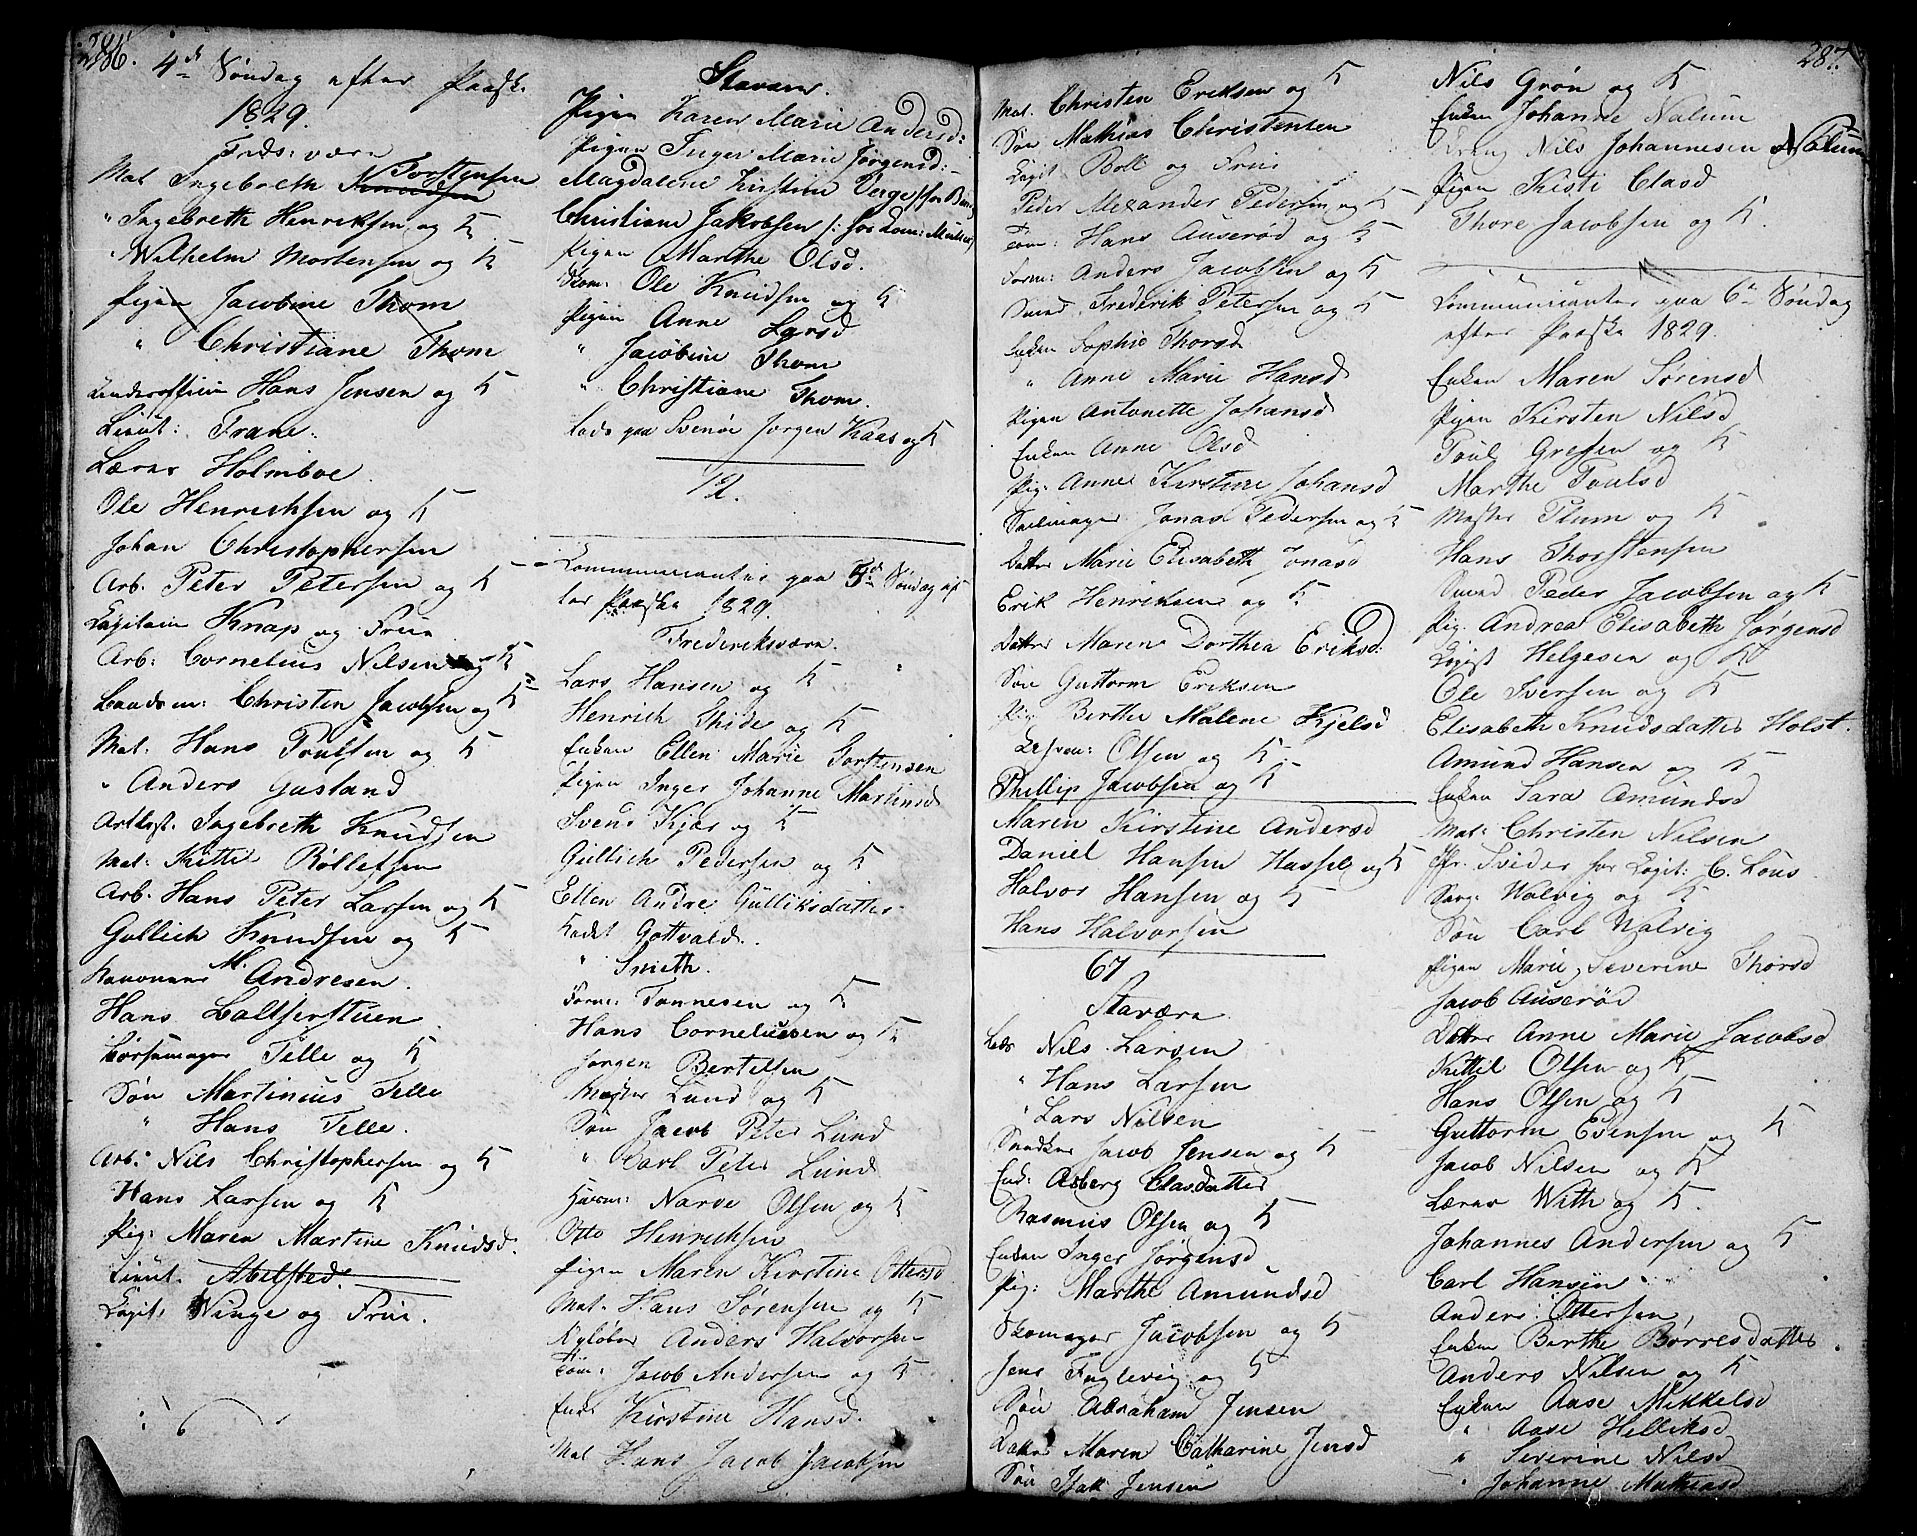 286.
4de Søndag efter Paaske
1829.
Fredsværn
Mat Ingebreth Knudsen Torstensen
" Ingebreth Henriksen og K
" Wilhelm Mortensen og K
Pigen Jacobine Thom
" Christiane Thom
Underofficier Hans Jensen og K
Lieut: Frane.
Lærer Holmboe
Ole Henrichsen og K
Johan Christophersen
Arb. Peter Petersen og K
Capitain Knap og Frue
Arb: Cornelius Nilsen og K
Christen Jacobsen og K
Mat. Hans Poulsen og K
" Anders Gusland
Ingebreth Knudsen
Mat: Kittil Rollefsen
Arb. Hans Peter Larsen og K
Gullich Knudsen og K
M. Andresen.
Hans Baltserstuen
Telle og K
Søn Martinius Telle
" Hans Telle.
Arb. Nils Christophersen og K
Hans Larsen og K
Pig: Maren Martine Knudsd.
Lieut. Abelsted.
Capit: Winge og Frue.
Stavern.
Pigen Karen Marie Andersd:
Pigen Inger Marie Jørgensd:
Magdalene Kirstine Verge
Christiane Jakobsen
Pigen Marthe Olsd.
Ole Knudsen og K
Pigen Anne Larsd
" Jacobine Thom
" Christiane Thom.
Lods paa Svenør Jørgen Kaas og K
12.
Communicanter paa 5de Søndag ef
ter Paaske 1829.
Frederiksværn.
Lars Hansen og K
Henrich Skide og K
Enken Ellen Marie Torstensen
Pigen Inger Johanne Martinsd
Svend Kjær og K
Gullich Pedersen og K
Ellen Andre Gulliksdatter
Kadet Gottvald.
" Smith.
Tønnesen og K
Hans Corneliussen og K
Jørgen Bertelsen
Mester Lund og K
Søn Jacob Peter Lund
" Carl Peter Lund
Narve Olsen og K
Otto Henrichsen
Pigen Maren Kirstine Ottersd
Mat. Hans Sørensen og K
Anders Halvorsen
Tøm: Jacob Andersen og K
Enk: Kirstine Hansd.
Mat Hans Jacob Jacobsen
287.
Mat. Christen Eriksen og K
Søn Mathias Christensen
Capit Boll og Frue
Peder Alexander Pedersen og K
Tøm: Hans Auserød og K
Anders Jacobsen og K
Smed Frederik Petersen og K
Enken Sophie Thorsd
" Anne Marie Hansd
Pigen Antonette Johansd
Enken Anne Olsd
Pig. Anne Kirstine Johansd
Seilmager Jonas Pedersen og K
Datter Marie Elisabeth Jonasd
Erik Henriksen og K
Datter Maren Dorthea Eriksd.
Søn Guttorm Eriksen
Pig Berthe Malene Kjelsd
Olsen og K
Phillip Jacobsen og K
Maren Kirstine Andersd
Daniel Hansen Hassel og K
Halvor Hansen og K
Hans Halvorsen
67
Staværn
Lods Nils Larsen
" Hans Larsen
" Lars Nilsen
Snedker Jacob Jensen og K
Enk: Asberg Clasdatter
Rasmus Olsen og K
Enken Inger Jørgensd
Pig: Marthe Amundsd
Skomager Jacobsen og K
Jens Fuglevig og K
Søn Abraham Jensen
Datter Maren Catharine Jensd
Søn Isak Jensen
Nils Grøn og K
Enken Johanne Nalum
Nils Johannesen Nalum
Pigen Kisti Clasd
Thore Jacobsen og K
Communicanter paa 6te Søndag
efter Paaske 1829.
Enken Maren Sørensd
Pigen Kirsten Nilsd
Poul Gresen og K
Marthe Poulsd
Mester Plum og K
Hans Thorstensen
Smed Peder Jacobsen og K
Pig. Andrea Elisabeth Jørgensd
Helgesen og K
Ole Iversen og K
Elisabeth Knudsdatter Holst.
Amund Hansen og K
Enken Sara Amundsd
Mat: Christen Nilsen
for Capit: C. Lous
Serg: Walvig og K
Søn Carl Walvig
Pigen Marie Severine Thorsd
Jacob Auserød
Datter Anne Marie Jacobsd
Kittil Olsen og K
Hans Olsen og K
Guttorm Evensen og K
Jacob Nilsen og K
Lærer With og K.
Johannes Andersen og K
Carl Hansen
Anders Ottersen
Enken Berthe Børresdatter
Anders Nilsen og K
Enken Aase Mikkelsd
" Aase Helliksd
" Severine Nilsd
" Johanne Mathiasd